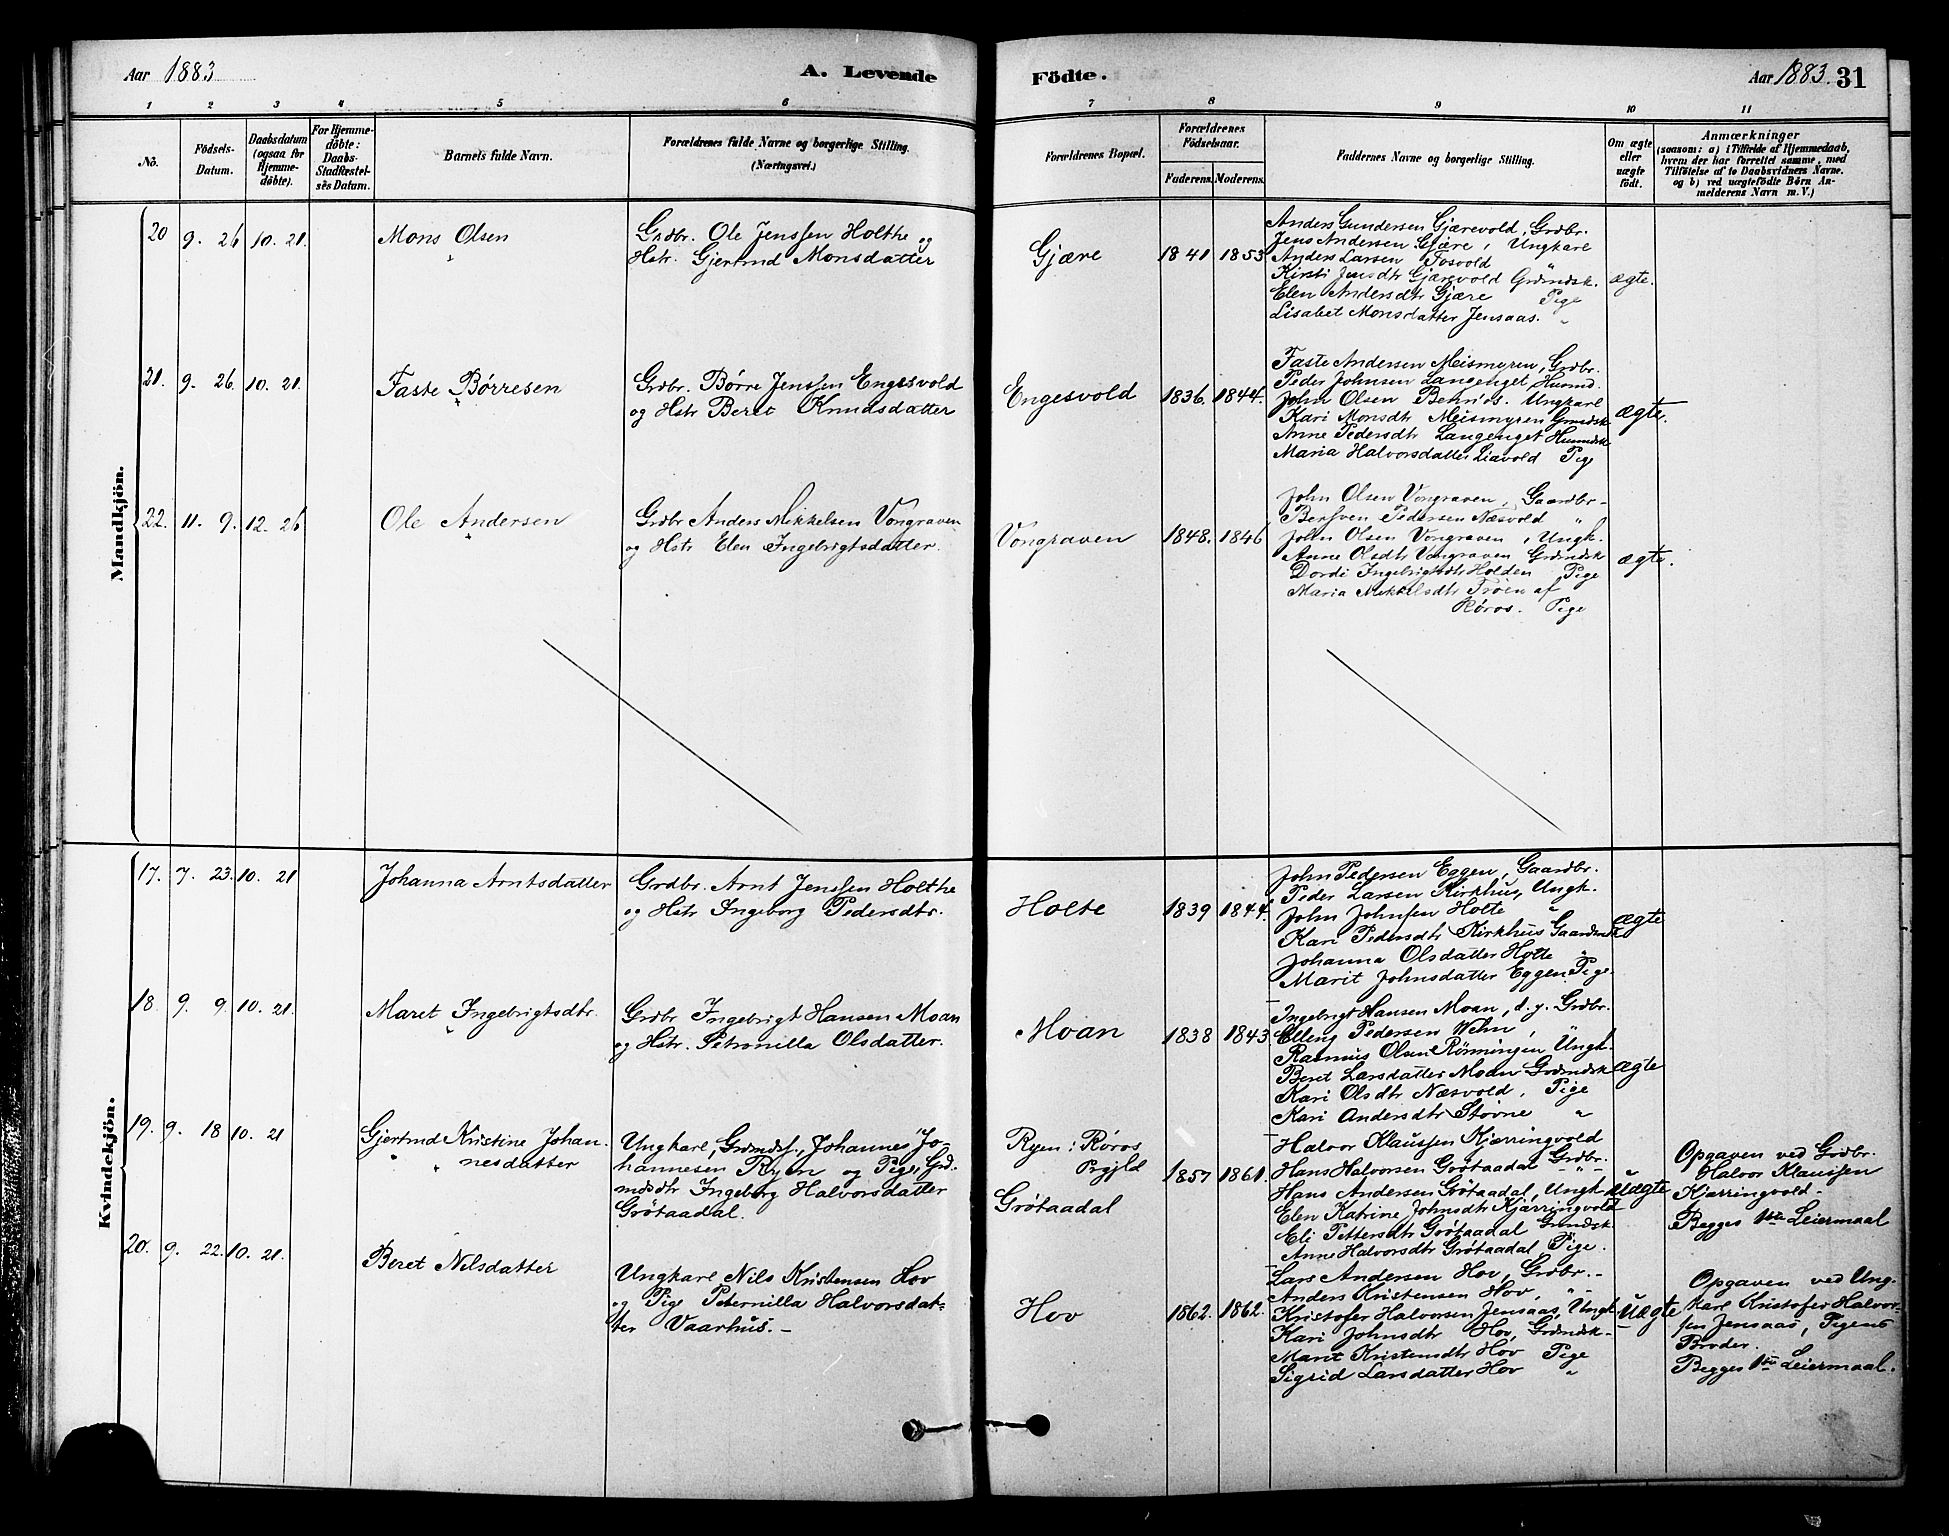 Aar 1883
A. Levende
Födte.
Aar 1883. 31
1 2 3 4 5 6 7 8 9 10 11
No.
Födsels-
Datum.
Daabsdatum
(ogsaa for
Hjemme-
döbte).
For Hjemme-
döbte:
Daabs-
Stadfæstel-
ses Datum.
Barnets fulde Navn.
Forældrenes fulde Navne og borgerlige Stilling.
(Næringsvei.)
Forældrenes Bopæl.
Forældrenes
Födselsaar.
Faderens. Moderens.
Faddernes Navne og borgerlige Stilling.
Om ægte
eller
uægte
födt.
Anmærkninger
(saasom: a) i Tilfælde af Hjemmedaab,
hvem der har forrettet samme, med
Tilföielse af to Daabsvidners Navne.
og b) ved uægtefödte Börn An-
melderens Navn m. V.)
Mandkjön.
20 9. 26 10. 21. Mons Olsen
Grdbr. Ole Jenssen Holthe og
Hstr. Gjertrud Monsdatter
Gjære 1841 1853
Anders Gundersen Gjærevold, Grdbr.
Jens Andersen Gjære, Ungkare
Anders Larsen Fosvold "
Kirsti Jensdtr Gjærevold Grdmdsk.
Elen Andersdtr Gjære Pige
Lisabet Monsdatter Jensaas. "
ægte.
21. 9. 26. 10. 21. Faste Börresen
Grdbr. Börre Jenssen Engesvold
og Hstr Beret Knudsdatter
Engesvold 1836. 1844.
Faste Andersen Meismyren, Grdbr.
Peder Johnsen Langenget, Husmd.
John Olsen Ungkarl
Kari Monsdtr Meismyren Grmdsk
Anne Pedersdtr Langenget Husmdsk
Maria Halvorsdatter Liavold Pige
ægte.
22. 11. 9. 12. 26 Ole Andersen
Grdbr Anders Mikkelsen Vongraven
og Hstr Elen Ingebrigtsdatter.
Vongraven 1848. 1846
John Olsen Vongraven, Gaardbr-
Bersven Pedersen Næsvold "
John Olsen Vongraven, Ungk.
Anne Olsdtr Vongraven Grdmdsk
Dordi Ingebrigtsdtr Holden Pige
Maria Mikkelsdtr Tröen af
Röros. Pige
ægte.
Kvindekjön.
17. 7. 23. 10. 21 Johanna Arntsdatter
Grdbr. Arnt Jenssen Holthe
og Hstr Ingeborg Pedersdtr.
Holte 1839 1844.
John Pedersen Eggen, Gaardbr.
Peder Larsen Kirkhus, Ungk.
John Johnsen Holte "
Kari Pedersdtr Kirkhus Gaardmdsk
Johanna Olsdatter Holte "
Marit Johnsdatter Eggen, Pige.
ægte
18. 9. 9. 10. 21. Maret Ingebrigtsdtr.
Grdbr Ingebrigt Hansen Moan
og Hstr. Petronilla Olsdatter.
Moan 1838 1843
Ingebrigt Hansen Moan, d. y. Grdbr.
Elling Pedersen Wehn, "
Rasmus Olsen Rönningen Ungk.
Beret Larsdatter Moan Grdmdsk
Kari Olsdtr Næsvold, Pige
Kari Andersdtr Stövne "
ægte
19. 9. 18 10. 21 Gjertrud Kristine Johan-
nesdatter
Ungkarl, Grdmdss., Johannes Jo-
hannesen Ryen og Pige, Grd-
mdsdtr Ingeborg Halvorsdatter
Grötaadal.
Ryen: Röros
Prgjld
Grötaadal
1857 1861.
Halvor Klaussen Kjærringvold
Grdbr.
Hans Halvorsen Grötaadal "
Hans Andersen Grötaadal, Ungk.
Elen Katrine Johnsdtr Kjærringvold
Eli Pettersdtr Grötaadal Grmdsk
Anne Halvorsdtr Grötaadal, Pige.
Uægte
Opgaven ved Grdbr.
Halvor Klaussen
Kjærringvold.
Begges 1ste Leiermaal
20. 9. 22. 10. 21. Beret Nilsdatter
Ungkarl Nils Kristensen Hov
og Pige Peternilla Halvorsdat-
ter Vaarhus. -
Hov 1862. 1862.
Lars Andersen Hov, Grdbr. -
Anders Kristensen Hov, "
Kristofer Halvorsen Jensaas, Ungk
Kari Johnsdtr Hov, Grdmdsk-
Marit Kristensdtr Hov Pige
Sigrid Larsdatter Hov "
Uægte
Opgaven ved Ung-
karl Kristofer Halvor-
sen Jensaas, Pigens
Broder.
Begges 1ste Leiermaal.